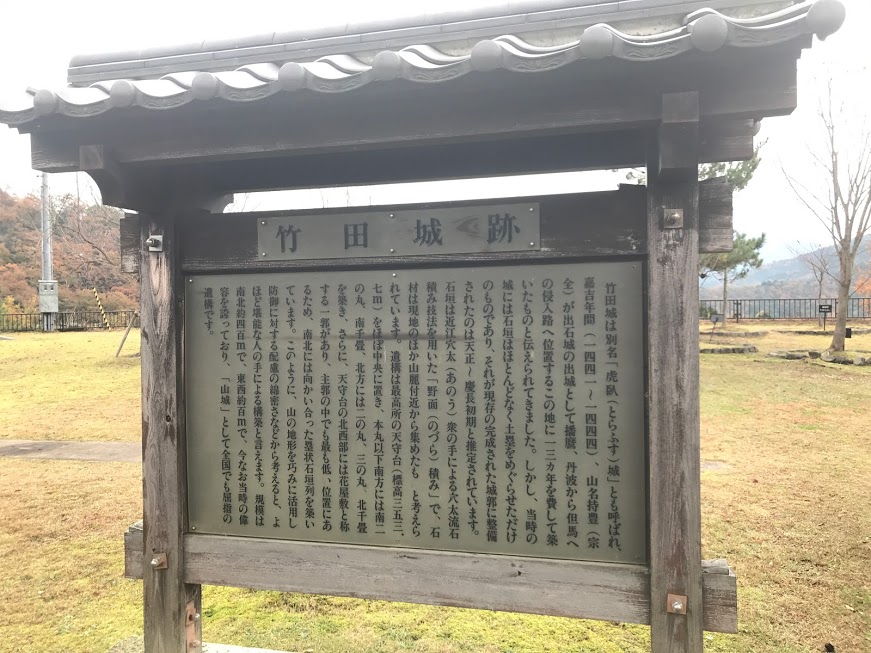 竹田城跡
竹田城は別名「虎臥（とらふす）城」とも呼ばれ、
嘉吉年間（一四四一〜一四四四）、山名持豊（宗
全）が出石城の出城として播磨、丹波から但馬へ
の侵入路へ位置するこの地に一三ヵ年を費して築
いたものと伝えられてきました。しかし、当時の
城には石垣はほとんどなく土塁をめぐらせただけ
のものであり、それが現存の完成された城郭に整備
されたのは天正〜慶長初期と推定されています。
石垣は近江穴太（あのう）衆の手による穴太流石
積み技法を用いた「野面（のづら）積み」で、石
材は現地のほか山麓付近から集めたも　と考えら
れています。遺構は最高所の天守台（標高三五三、
七ｍ）をほぼ中央に置き、本丸以下南方には南二
の丸、南千畳、北方には二の丸、三の丸　北千畳
を築き、さらに　天守台の北西部には花屋敷と称
する一郭があり、主郭の中でも最も低い位置にあ
るため、南北には向かい合った塁状石垣列を築い
ています。このように、山の地形を巧みに活用し
防御に対する配慮の綿密さなどから考えると、よ
ほど堪能な人の手による構築と言えます。規模は
南北約四百ｍで、東西約百ｍで、今なお当時の偉
容を誇っており、「山城」として全国でも屈指の
遺構です。